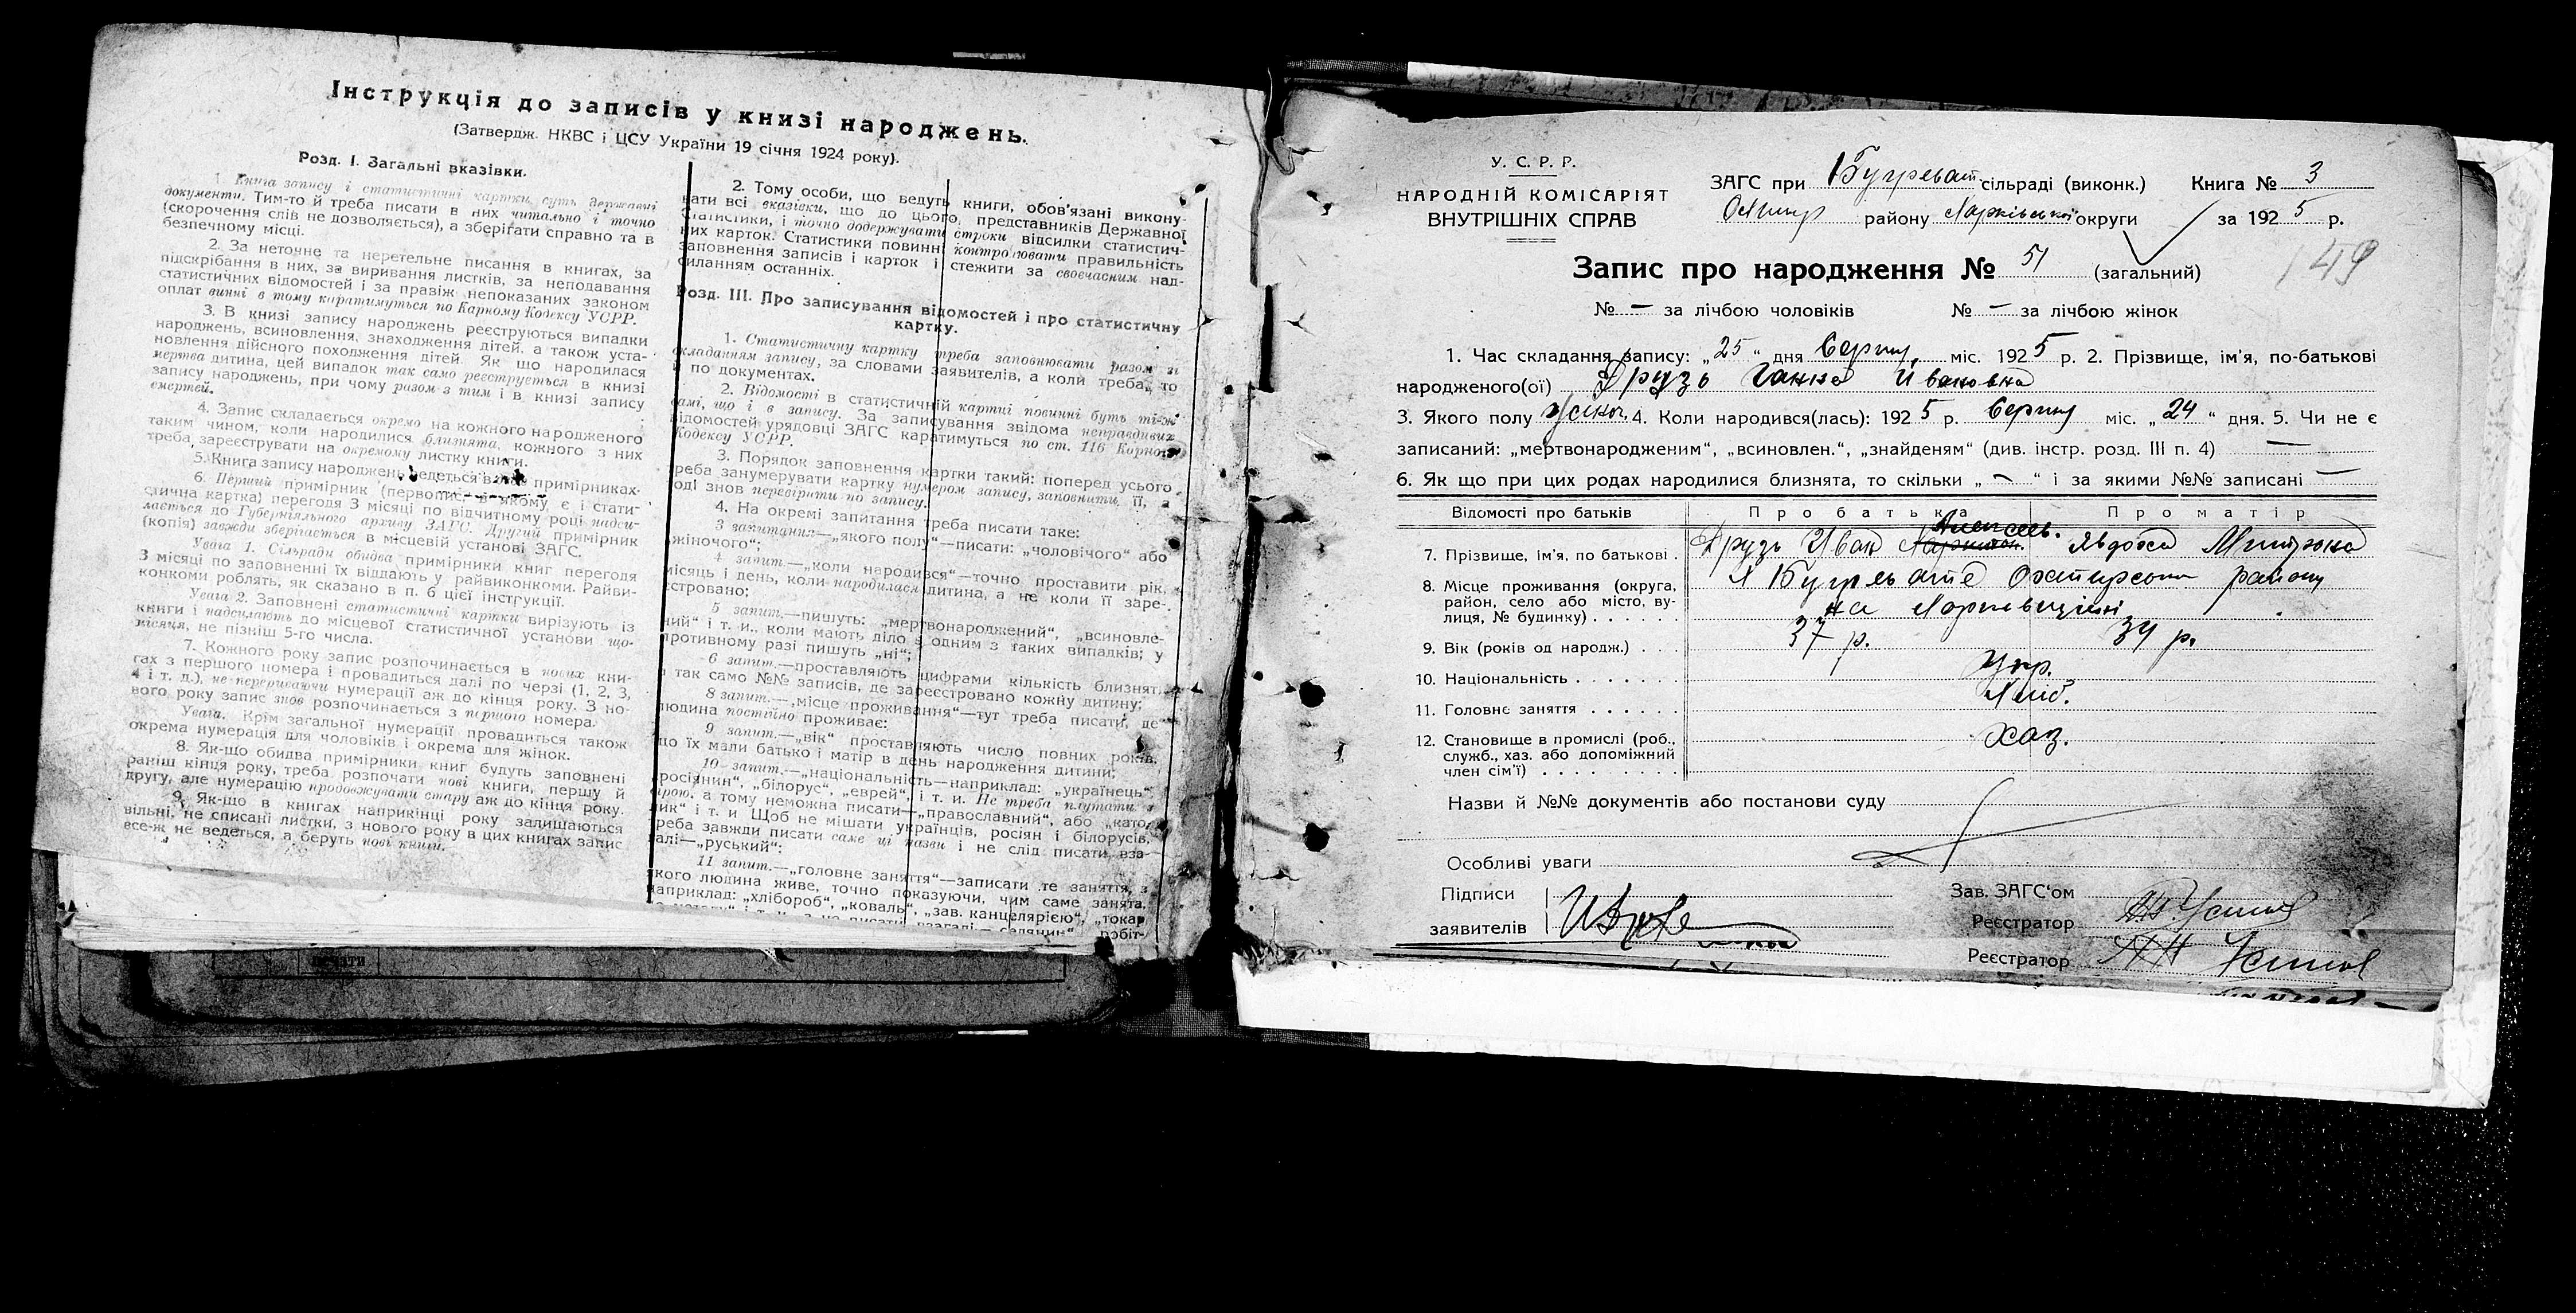 Інструкція до записів у книзі народжень.
(Затвердж. НКВС і ЦСУ України 19 січня 1924 року).
Розд. І. Загальні вказівки.
1. Книга запису і статистичні картки суть державні
документи. Тим-то й треба писати в них читально і точно
(скорочення слів не дозволяється), а зберігати справно та в
безпечному місці.
2. За неточне та неретельне писання в книгах, за
підскрібання в них, за виривання листків, за неподавання
статистичних відомостей і за правіж непоказаних законом
оплат винні в тому каратимуться по Карному Кодексу УСРР.
3. В книзі запису народжень реєструються випадки
народжень, всиновлення, знаходження дітей, а також уста-
новлення дійсного походження дітей. Як що народилася
мертва дитина, цей випадок так само реєструється в книзі
запису народжень, при чому разом з тим і в книзі запису
смертей.
4. Запис складається окремо на кожного народженого
таким чином, коли народилися близнята, кожного з них
треба зареєструвати на окремому листку книги.
5. Книга запису народжень ведеться в примірниках.
6. Перший примірник (первопис в якому є і стати-
стична картка) перегодя 3 місяці по відчитному році надси-
лається до Губерніяльного архиву ЗАГС. Другий примірник
(копія) завжди зберігається в місцевій установі ЗАГС.
Увага 1. Сільради обидва примірники книг перегодя
3 місяці по заповненні їх віддають у райвиконкоми. Райви-
конкоми роблять, як сказано в п. 6 цієї інструкції.
Увага 2. Заповнені статистичні картки вирізують із
книги і надсилають до місцевої статистичної установи що-
місяця, не пізніш 5-го числа.
7. Кожного року запис розпочинається в нових кни-
гах з першого номера і провадиться далі по черзі (1, 2, 3,
4 і т. д.), не перериваючи нумерації аж до кінця року. З но-
вого року запис знов розпочинається з першого номера.
Увага. Крім загальної нумерації провадиться також
окрема нумерація для чоловіків і окрема для жінок.
8. Як-що обидва примірники книг будуть заповнені
раніш кінця року, треба розпочати нові книги, першу й
другу, але нумерацію продовжувати стару аж до кінця року.
9. Як-що в книгах наприкінці року залишаються
вільні, не списані листки, з нового року в цих книгах запис
все-ж не ведеться, а беруть нові книги.
2. Тому особи, що ведуть книги, обов'язані викону-
вати всі вказівки, що до цього, представників Державної
Статистики, і точно додержувати строки відсилки статистич-
них карток. Статистики повинні контролювати правильність
заповнення записів і карток і стежити за своєчасним над-
силанням останніх.
Розд. ІІІ. Про записування відомостей і про статистичну
картку.
1. Статистичну картку треба заповнювати разом зі
складанням запису, за словами заявителів, а коли треба, то
й по документах.
2. Відомості в статистичній картці повинні буть ті-ж
самі, що і в запису. За записування звідома неправдивих
відомостей урядовці ЗАГС каратимуться по ст. 116 Карного
Кодексу УСРР.
3. Порядок заповнення картки такий: поперед усього
треба занумерувати картку нумером запису, заповнити її, а
тоді знов перевірити по запису.
4. На окремі запитання треба писати таке:
3 запитання—„якого полу"—писати: „чоловічого" або
„жіночого";
4 запит.—„коли народився"—точно проставити рік,
місяць і день, коли народилася дитина, а не коли її заре-
єстровано;
5 запит.—пишуть: „мертвонароджений", „всиновле-
ний" і т. и., коли мають діло з одним з таких випадків; у
противному разі пишуть „ні";
6 запит.—проставляють цифрами кількість близнят,
а так само №№ записів, де зареєстровано кожну дитину;
8 запит.—„місце проживання"—тут треба писати, де
людина постійно проживає;
9 запит.—„вік" проставляють число повних років,
що їх мали батько і матір в день народження дитини;
10 запит.—„національність—наприклад: „українець",
„росіянин", „білорус", „еврей", і т. и. Не треба плутати з
вірою, а тому неможна писати—„православний", або „като-
лик" і т. и Щоб не мішати українців, росіян і білорусів,
треба завжди писати саме ці назви і не слід писати вза-
галі—„руський";
11 запит.—„головне заняття"—записати те заняття, з
якого людина живе, точно показуючи, чим саме занята,
наприклад: „хлібороб", „коваль", „зав. канцелярією", „токар
печати
У. С. Р. Р.
НАРОДНІЙ КОМІСАРІЯТ
ВНУТРІШНІХ СПРАВ
ЗАГС при Бугреват. сільраді (виконк.) Книга № 3
Охтир району Харківської округи за 1925 р.
149
Запис про народження № 51 (загальний)
№ — за лічбою чоловіків № — за лічбою жінок
1. Час складання запису: „25" дня Серпн. міс. 1925 р. 2. Прізвище, ім'я, по-батькові
народженого(ої) Друзь Ганна Ивановна
3. Якого полу жіноч. 4. Коли народився(лась): 1925 р. Серпня міс. „24" дня. 5. Чи не є
записаний: „мертвонародженим", „всиновлен.", „знайденям" (див. інстр. розд. III п. 4) —
6. Як що при цих родах народилися близнята, то скільки „—" і за якими №№ записані —
Відомості про батьків Про батька Про матір
7. Прізвище, ім'я, по батькові. Друзь Иван Алексеев. Явдоха Митровна
8. Місце проживання (округа, район, село або місто, ву-лиця, № будинку) х Бугревате Охтирського району
на Харківщині
9. Вік (років од народж.) 37 р. 34 р.
10. Національність Укр.
11. Головне заняття Хліб.
12. Становище в промислі (роб., служб., хаз. або допоміжний член сім'ї) хаз.
Назви й №№ документів або постанови суду
Особливі уваги
Підписи
заявителів
Зав. ЗАГС'ом
Реєстратор
Реєстратор